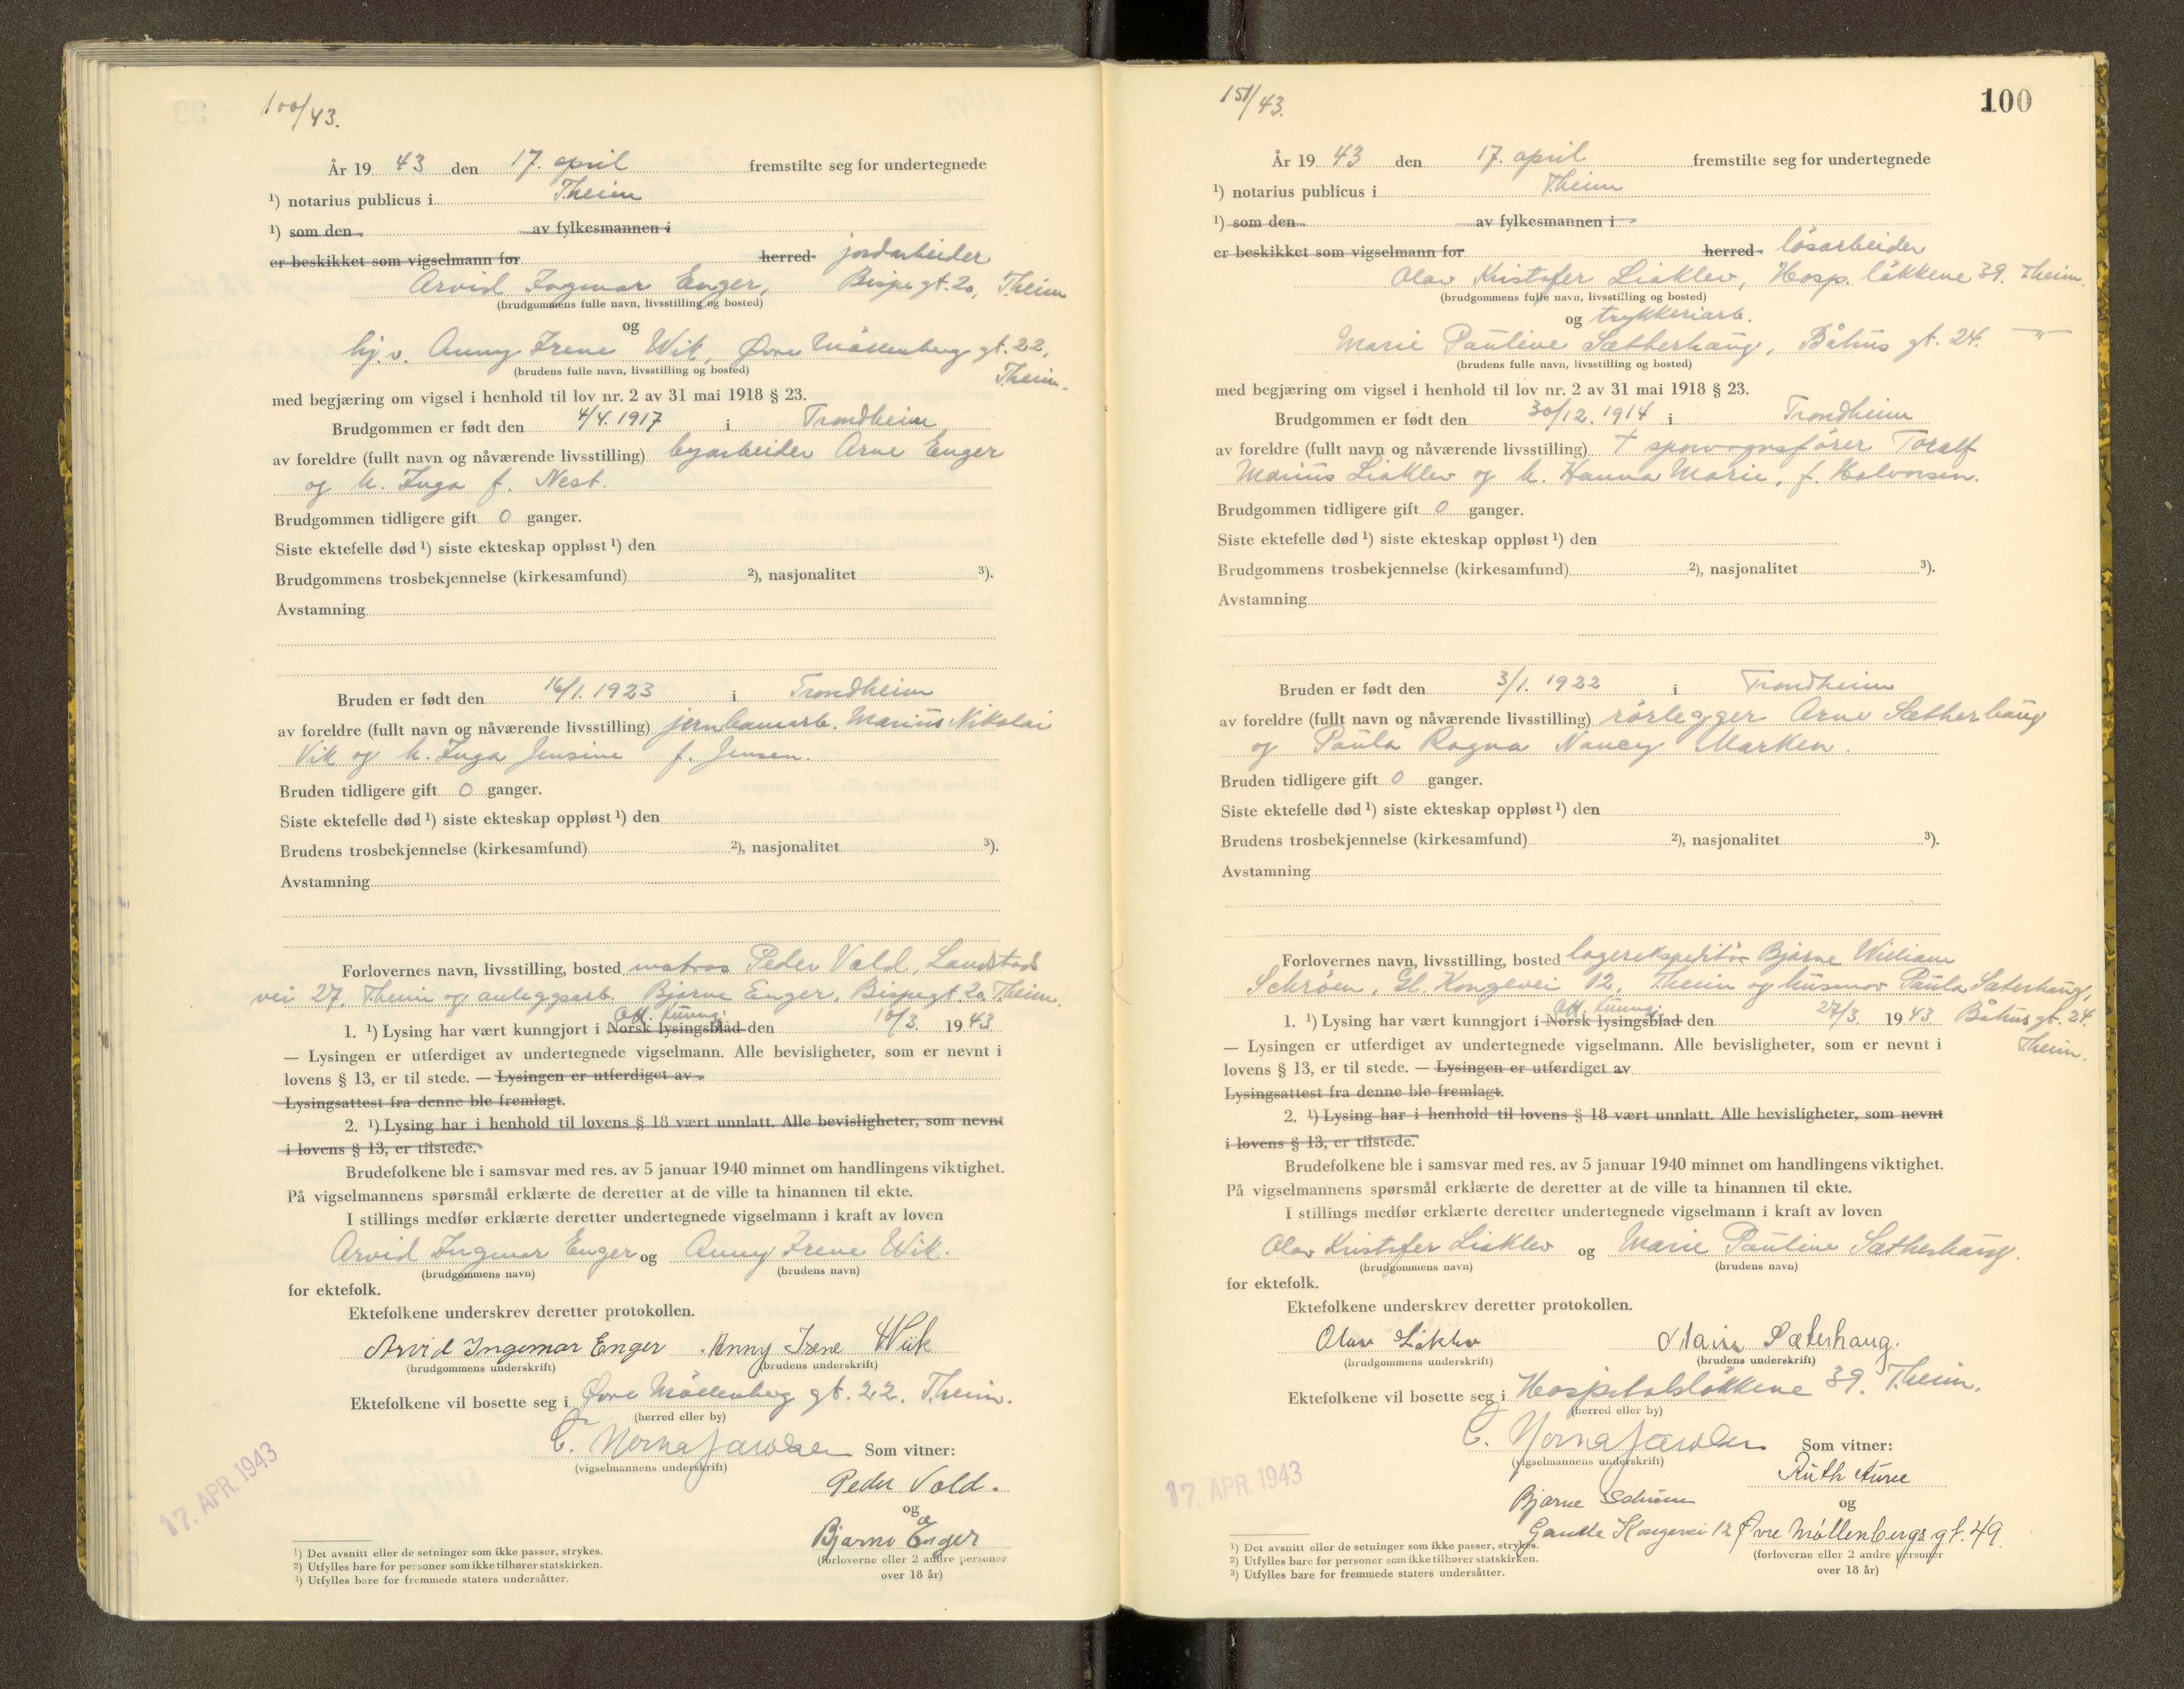 100/43.
År 19 43 den 17. april fremstilte seg for undertegnede
¹) notarius publicus i Theim
¹) som den av fylkesmannen i
er beskikket som vigselmann for herred jordarbeider
Arvid Ingemar Enger, Bispegt. 20, Theim
(brudgommens fulle navn, livsstilling og bosted)
og
hj.v. Anny Irene Wik, Øvre Møllenberg gt. 22,
(brudens fulle navn, livsstilling og bosted)
Theim.
med begjæring om vigsel i henhold til lov nr. 2 av 31 mai 1918 § 23.
Brudgommen er født den 4/4. 1917 i Trondheim
av foreldre (fullt navn og nåværende livsstilling) byarbeider Arne Enger
og h. Inga f. Nest.
Brudgommen tidligere gift 0 ganger.
Siste ektefelle død ¹) siste ekteskap oppløst ¹) den
Brudgommens trosbekjennelse (kirkesamfund) ²), nasjonalitet ³).
Avstamning
Bruden er født den 16/1. 1923 i Trondheim
av foreldre (fullt navn og nåværende livsstilling) jernbanearb. Marius Nikolai
Vik og h. Inga Jensine f. Jensen.
Bruden tidligere gift 0 ganger.
Siste ektefelle død ¹) siste ekteskap oppløst ¹) den
Brudens trosbekjennelse (kirkesamfund) ²), nasjonalitet ³).
Avstamning
Forlovernes navn, livsstilling, bosted matros Peder Vald, Landstads
vei 27. Theim og anleggsarb. Bjarne Enger, Bispegt. 20 Theim.
Off. kunngj.
1. ¹) Lysing har vært kunngjort i Norsk lysingsblad den 10/3. 19 43
— Lysingen er utferdiget av undertegnede vigselmann. Alle bevisligheter, som er nevnt i
lovens § 13, er til stede. — Lysingen er utferdiget av
Lysingsattest fra denne ble fremlagt.
2. ¹) Lysing har i henhold til lovens § 18 vært unnlatt. Alle bevisligheter, som nevnt
i lovens § 13, er tilstede.
Brudefolkene ble i samsvar med res. av 5 januar 1940 minnet om handlingens viktighet.
På vigselmannens spørsmål erklærte de deretter at de ville ta hinannen til ekte.
I stillings medfør erklærte deretter undertegnede vigselmann i kraft av loven
Arvid Ingemar Enger og Anny Irene Wik.
(brudgommens navn) (brudens navn)
for ektefolk.
Ektefolkene underskrev deretter protokollen.
Arvid Ingemar Enger Anny Irene Wiik
(brudgommens underskrift) (brudens underskrift)
Ektefolkene vil bosette seg i Øvre Møllenberg gt. 22. Theim.
(herred eller by)
Som vitner:
(vigselmannens underskrift)
Peder Vald.
17. APR. 1943
og
Bjarne Enger
(forloverne eller 2 andre personer
over 18 år)
¹) Det avsnitt eller de setninger som ikke passer, strykes.
²) Utfylles bare for personer som ikke tilhører statskirken.
³) Utfylles bare for fremmede staters undersåtter.
151/43.
100
År 19 43 den 17. april fremstilte seg for undertegnede
¹) notarius publicus i Theim
¹) som den av fylkesmannen i
er beskikket som vigselmann for herred. løsarbeider
Olav Kristofer Liaklev, Hosp. løkkene 39. Theim.
(brudgommens fulle navn, livsstilling og bosted)
og trykkeriarb.
Marie Pauline Sætherhaug, Båhus gt. 24. —"—
(brudens fulle navn, livsstilling og bosted)
med begjæring om vigsel i henhold til lov nr. 2 av 31 mai 1918 § 23.
Brudgommen er født den 30/12. 1914 i Trondheim
av foreldre (fullt navn og nåværende livsstilling) † sporvognsfører Toralf
Marius Liaklev og h. Hanna Marie, f. Halvorsen.
Brudgommen tidligere gift 0 ganger.
Siste ektefelle død ¹) siste ekteskap oppløst ¹) den
Brudgommens trosbekjennelse (kirkesamfund) ²), nasjonalitet ³).
Avstamning
Bruden er født den 3/1. 1922 i Trondheim
av foreldre (fullt navn og nåværende livsstilling) rørlegger Arne Sætherhaug
og Paula Ragna Nancy Marken.
Bruden tidligere gift 0 ganger.
Siste ektefelle død ¹) siste ekteskap oppløst ¹) den
Brudens trosbekjennelse (kirkesamfund) ²), nasjonalitet ³).
Avstamning
Forlovernes navn, livsstilling, bosted lagerekspeditør Bjarne William
Schrøen, Gl. Kongevei 12, Theim og husmor Paula Sæterhaug,
Off. kunngj.
1. ¹) Lysing har vært kunngjort i Norsk lysingsblad den 27/3. 19 43. Båhus gt. 24.
— Lysingen er utferdiget av undertegnede vigselmann. Alle bevisligheter, som er nevnt i Theim.
lovens § 13, er til stede. — Lysingen er utferdiget av
Lysingsattest fra denne ble fremlagt.
2. ¹) Lysing har i henhold til lovens § 18 vært unnlatt. Alle bevisligheter, som nevnt
i lovens § 13, er tilstede.
Brudefolkene ble i samsvar med res. av 5 januar 1940 minnet om handlingens viktighet.
På vigselmannens spørsmål erklærte de deretter at de ville ta hinannen til ekte.
I stillings medfør erklærte deretter undertegnede vigselmann i kraft av loven
Olav Kristofer Liaklev og Marie Pauline Sætherhaug.
(brudgommens navn) (brudens navn)
for ektefolk.
Ektefolkene underskrev deretter protokollen.
Olav Liaklev Marie Sæterhaug.
(brudgommens underskrift) (brudens underskrift)
Ektefolkene vil bosette seg i Hospitalsløkkene 39. Theim.
(herred eller by)
Som vitner:
(vigselmannens underskrift)
Ruth Aune
17. APR. 1943
Bjarne Schrøen og
Gamle Kongevei 12 Øvre Møllenbergs gt. 49.
(forloverne eller 2 andre personer
over 18 år)
¹) Det avsnitt eller de setninger som ikke passer, strykes.
²) Utfylles bare for personer som ikke tilhører statskirken.
³) Utfylles bare for fremmede staters undersåtter.